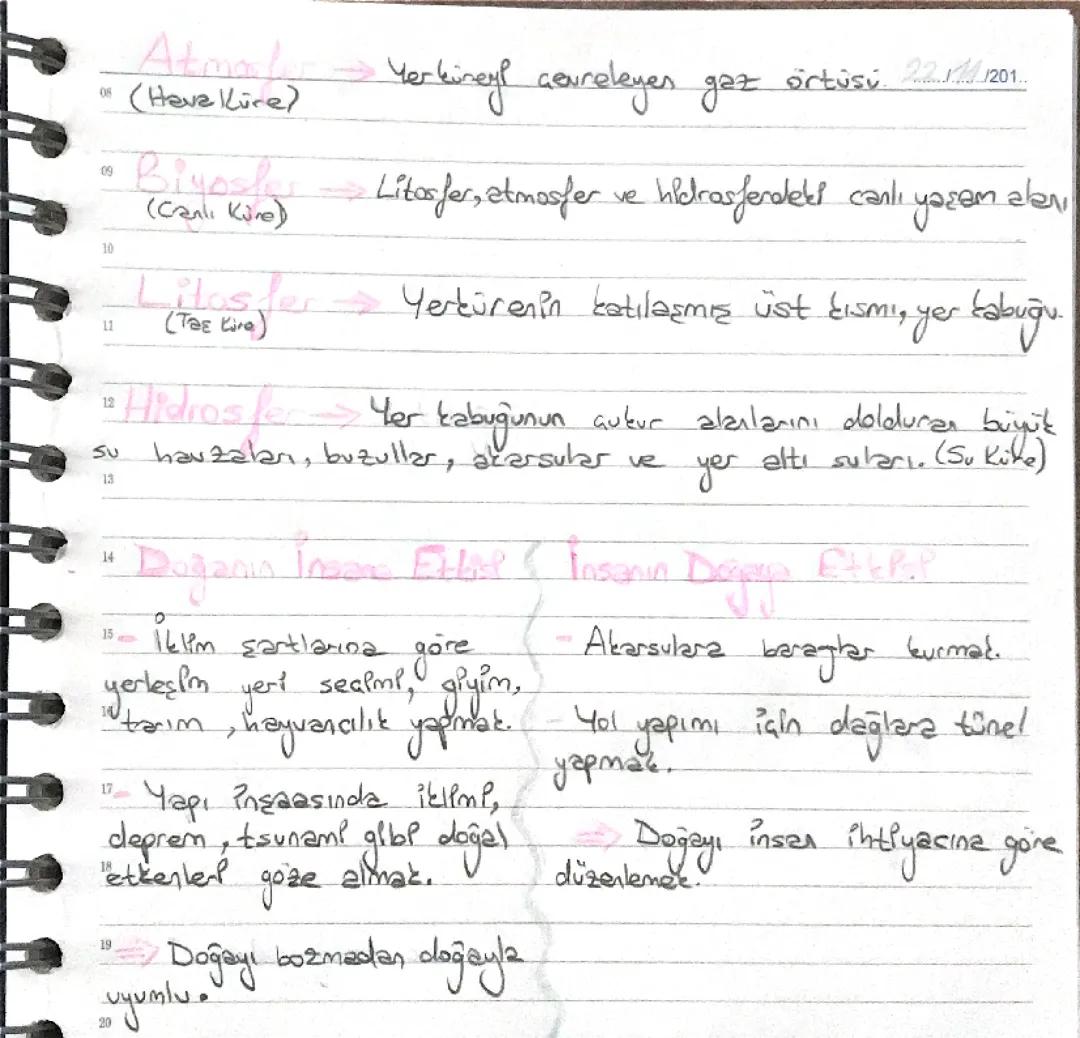 Atmosfer → Yerküreyi çevreleyen gaz örtüsü. 22/11/201..
08 (Hava Küre)
09 Biyosfer → Litosfer, atmosfer ve hidrosferdeki canlı yaşam alanı
(Canlı Küre)
10
Litosfer → Yerkürenin katılaşmış üst kısmı, yer kabuğu.
11 (Taş Küre)
12 Hidrosfer → Yer kabuğunun çukur alanlarını dolduran büyük
su havzaları, buzullar, akarsular ve yer altı suları. (Su Küre)
13
14 Doğanın İnsana Etkisi İnsanın Doğaya Etkisi
15 - İklim şartlarına göre
yerleşim yeri seçimi, giyim,
16 tarım, hayvancılık yapmak.
17 - Yapı inşaasında iklimi,
deprem, tsunami gibi doğal
18 etkenleri göze almak.
19 ⇒ Doğayı bozmadan doğayla
uyumlu.
20
- Akarsulara barajlar kurmak.
- Yol yapımı için dağlara tünel
yapmak.
⇒ Doğayı insan ihtiyacına göre
düzenlemek.